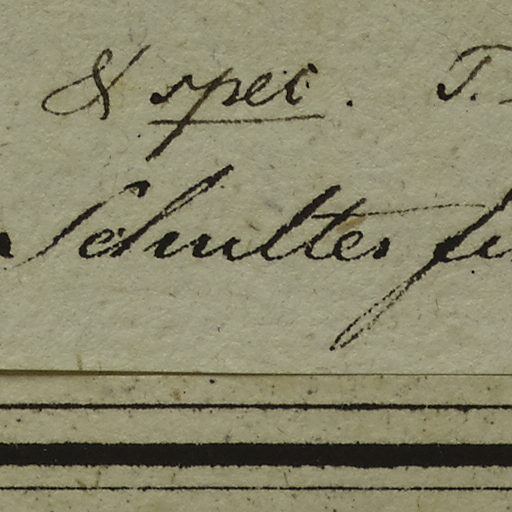 & spec. T.
Schultes fi